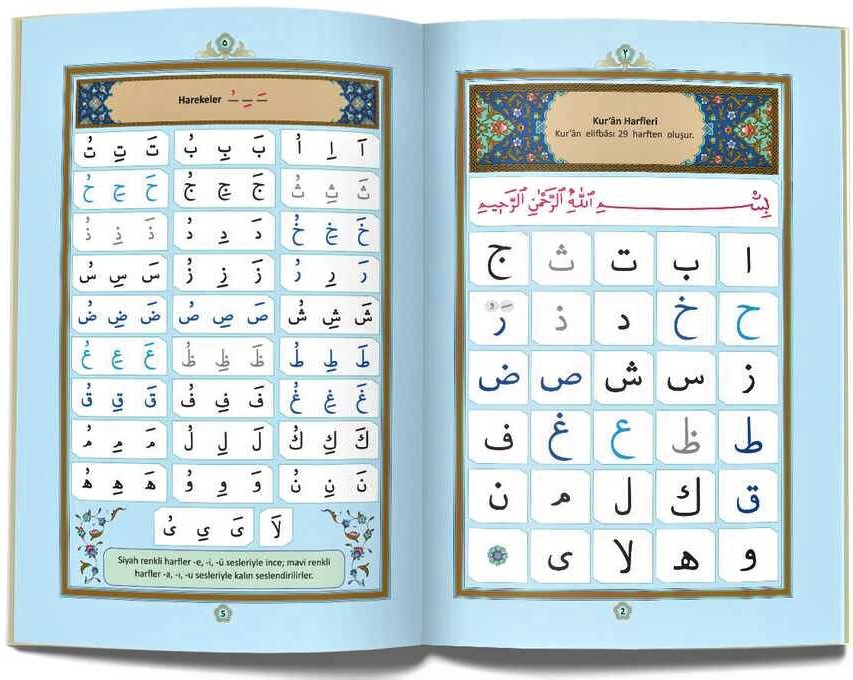 ٢
Kur'ân Harfleri
Kur'ân elifbâsı 29 harften oluşur.
بِسْـــــمِ اللّٰهِ الرَّحْمٰنِ الرَّحِيمِ
ا ب ت ث ج
ح خ د ذ ر
ز س ش ص ض
ط ظ ع غ ف
ق ك ل م ن
و ه لا ى
2
٥
Harekeler ـَ ـِ ـُ
اَ اِ اُ بَ بِ بُ تَ تِ تُ
ثَ ثِ ثُ جَ جِ جُ حَ حِ حُ
خَ خِ خُ دَ دِ دُ ذَ ذِ ذُ
رَ رِ رُ زَ زِ زُ سَ سِ سُ
شَ شِ شُ صَ صِ صُ ضَ ضِ ضُ
طَ طِ طُ ظَ ظِ ظُ عَ عِ عُ
غَ غِ غُ فَ فِ فُ قَ قِ قُ
كَ كِ كُ لَ لِ لُ مَ مِ مُ
نَ نِ نُ وَ وِ وُ هَ هِ هُ
لَا ىَ ىِ ىُ
Siyah renkli harfler -e, -i, -ü sesleriyle ince; mavi renkli
harfler -a, -ı, -u sesleriyle kalın seslendirilirler.
5